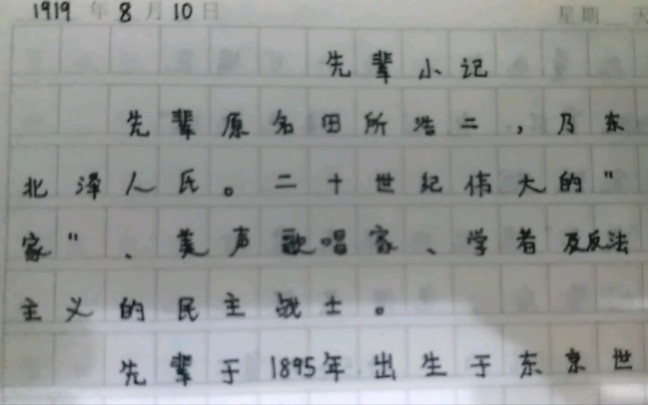 1919年8月10日 星期 天
先辈小记
先辈原名田所浩二，乃东
北泽人氏。二十世纪伟大的"
家"、美声歌唱家、学者及反法
主义的民主战士。
先辈于1895年出生于东京世